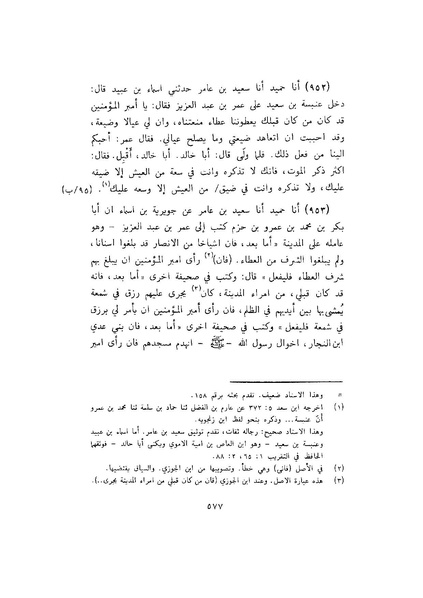 (٩٥٢) أنا حميد أنا سعيد بن عامر حدثني اسماء بن عبيد قال:
دخل عنبسة بن سعيد على عمر بن عبد العزيز فقال: يا أمير المؤمنين
قد كان من كان قبلك يعطوننا عطاء منعتناه، وان لي عيالا وضيعة،
وقد احببت ان اتعاهد ضيعتي وما يصلح عيالي. فقال عمر: أحبكم
الينا من فعل ذلك. فلما ولّى قال: أبا خالد. أبا خالد، أقْبِل. فقال:
اكثر ذكر الموت، فانك لا تذكره وانت في سعة من العيش إلا ضيقه
عليك، ولا تذكره وانت في ضيق/ من العيش إلا وسعه عليك(١). (٩٥/ب)
(٩٥٣) أنا حميد أنا سعيد بن عامر عن جويرية بن اسماء ان أبا
بكر بن محمد بن عمرو بن حزم كتب إلى عمر بن عبد العزيز – وهو
عامله على المدينة «أما بعد، فان اشياخا من الانصار قد بلغوا اسنانا،
ولم يبلغوا الشرف من العطاء. (فان)(٢) رأى امير المؤمنين ان يبلغ بهم
شرف العطاء فليفعل» قال: وكتب في صحيفة اخرى «أما بعد، فانه
قد كان قبلي، من امراء المدينة، كان(٣) يجرى عليهم رزق في شمعة
يُمشى بها بين أيديهم في الظلم، فان رأى أمير المؤمنين ان يأمر لي برزق
في شمعة فليفعل» وكتب في صحيفة اخرى «أما بعد، فان بني عدي
ابن النجار، اخوال رسول الله – ﷺ – انهدم مسجدهم فان رأى امير
= وهذا الاسناد ضعيف. تقدم بحثه برقم ١٥٨.
(١) اخرجه ابن سعد ٥: ٣٧٢ عن عارم بن الفضل ثنا حماد بن سلمة ثنا محمد بن عمرو
أنّ عنبسة... وذكره بنحو لفظ ابن زنجويه.
وهذا الاسناد صحيح: رجاله ثقات، تقدم توثيق سعيد بن عامر. أما اسماء بن عبيد
وعنبسة بن سعيد – وهو ابن العاص بن امية الاموي ويكنى أبا خالد – فوثقهما
الحافظ في التقريب ١: ٦٥، ٢: ٨٨.
(٢) في الأصل (فاني) وهي خطأ. وتصويبها من ابن الجوزي. والسياق يقتضيها.
(٣) هذه عبارة الاصل. وعند ابن الجوزي (فان من كان قبلي من امراء المدينة يجرى..).
٥٧٧